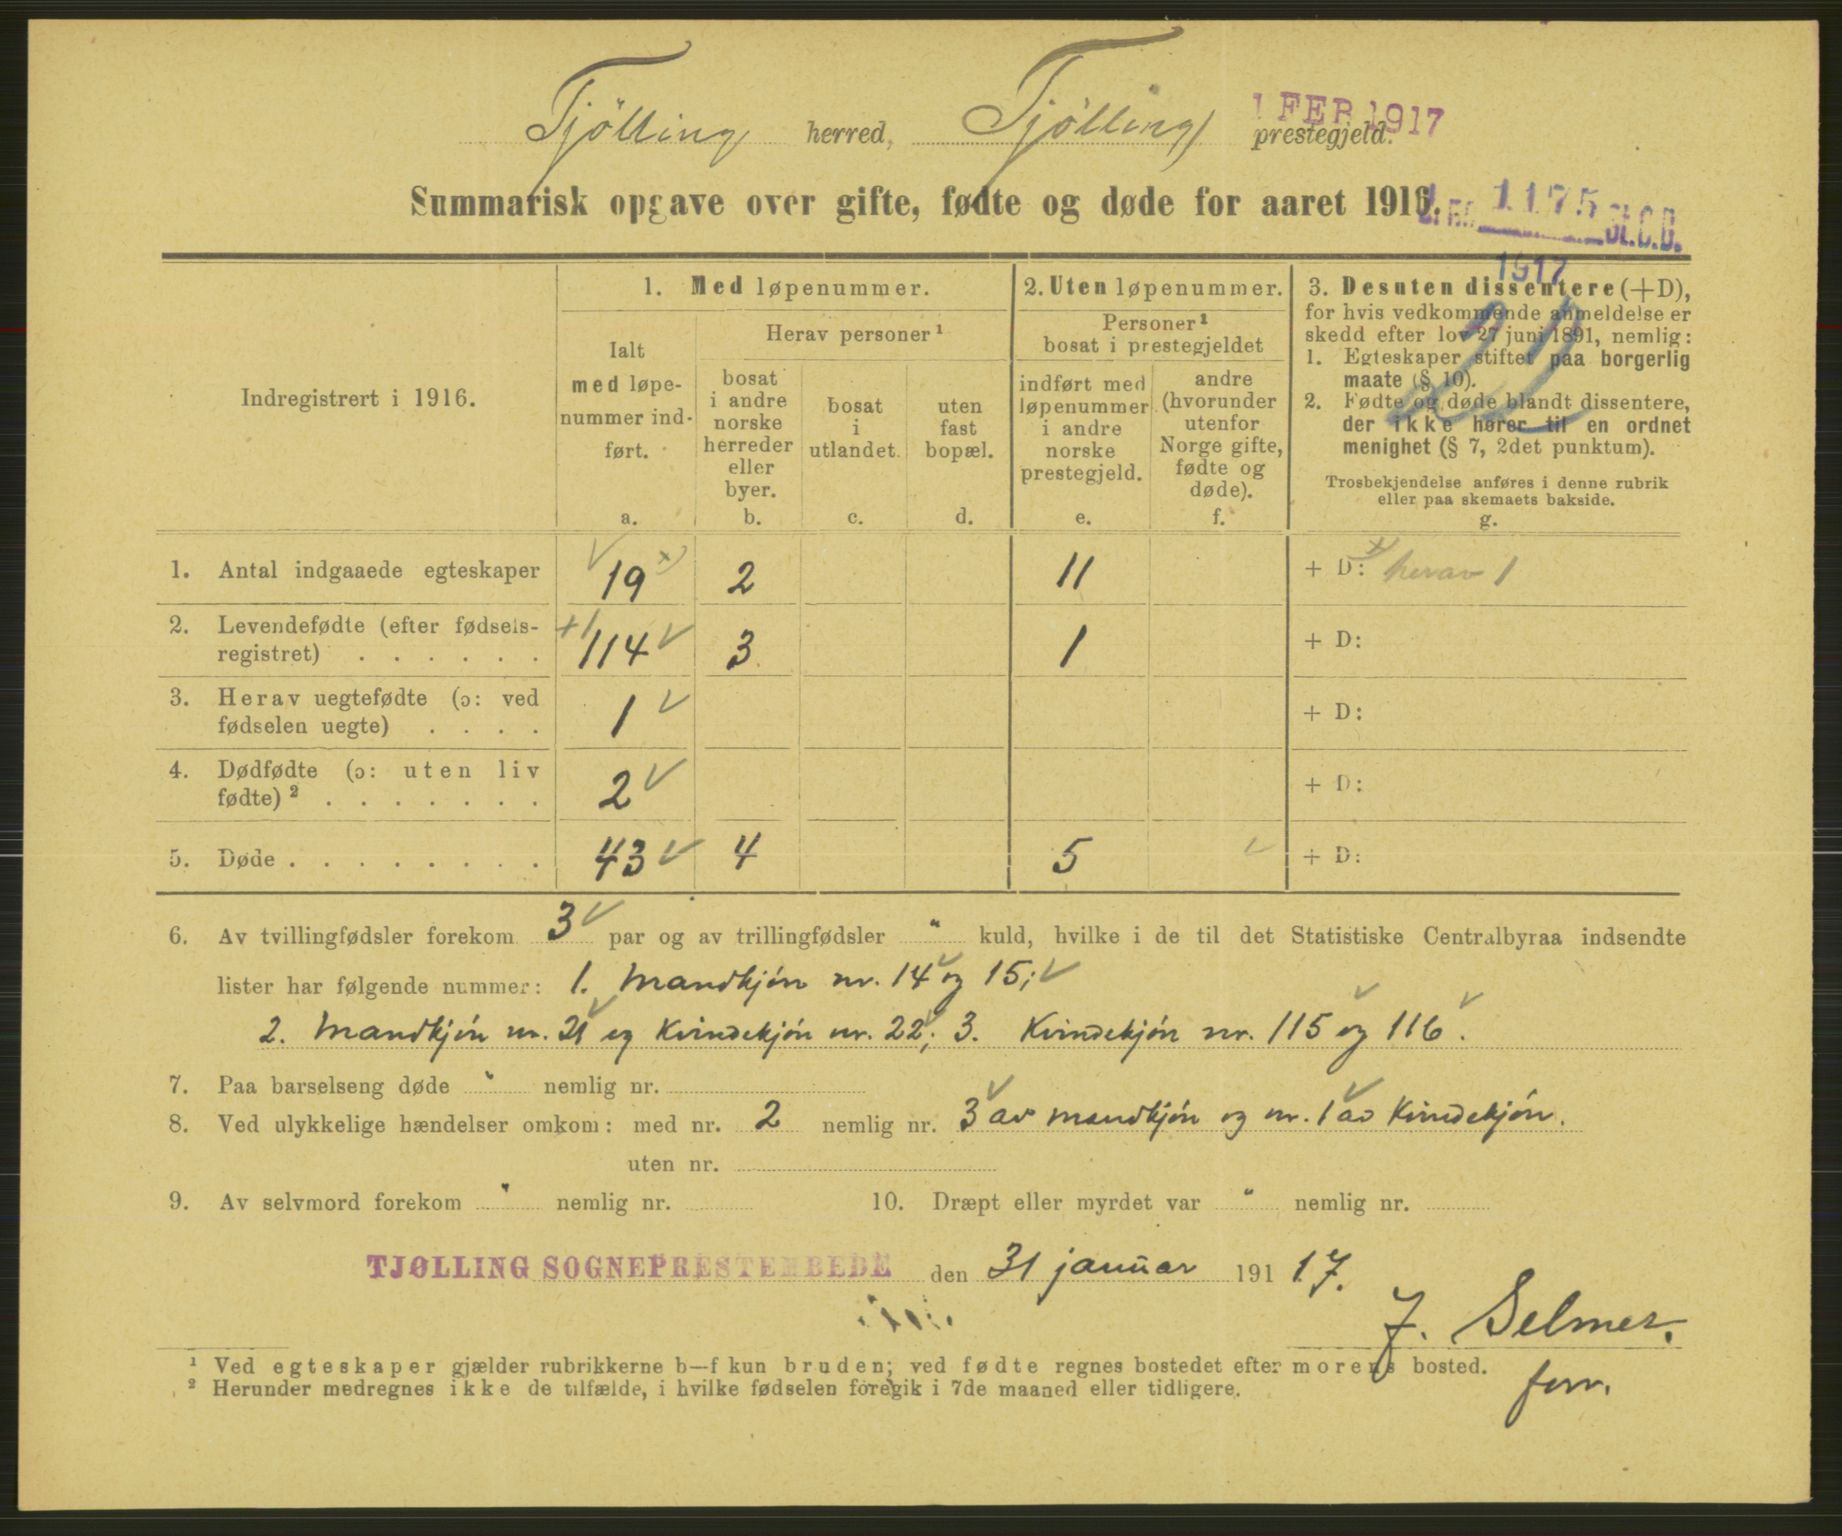 1 FEB 1917
Tjölling herred, Tjølling prestegjeld.
Summarisk opgave over gifte, fødte og døde for aaret 1916.
1175 St.C.B.
1917
22
Indregistrert i 1916.
1. Med løpenummer.
Ialt
med løpe-
nummer ind-
ført.
a.
Herav personer ¹
bosat
i andre
norske
herreder
eller
byer.
b.
bosat
i
utlandet.
c.
uten
fast
bopæl.
d.
2. Uten løpenummer.
Personer ¹
bosat i prestegjeldet
indført med
løpenummer
i andre
norske
prestegjeld.
e.
andre
(hvorunder
utenfor
Norge gifte,
fødte og
døde).
f.
3. Desuten dissentere (+D),
for hvis vedkommende anmeldelse er
skedd efter lov 27 juni 1891, nemlig:
1. Egteskaper stiftet paa borgerlig
maate (§ 10).
2. Fødte og døde blandt dissentere,
der ikke hører til en ordnet
menighet (§ 7, 2det punktum).
Trosbekjendelse anføres i denne rubrik
eller paa skemaets bakside.
g.
1. Antal indgaaede egteskaper 19 x) 2 11 + D: x) herav 1
2. Levendefødte (efter fødsels-
registret) . . . . . . 114 3 1 + D:
3. Herav uegtefødte (ɔ: ved
fødselen uegte) . . . . 1 + D:
4. Dødfødte (ɔ: uten liv
fødte) ² . . . . . . . 2 + D:
5. Døde . . . . . . . . 43 4 5 + D:
6. Av tvillingfødsler forekom 3 par og av trillingfødsler " kuld, hvilke i de til det Statistiske Centralbyraa indsendte
lister har følgende nummer: 1. Mandkjön nr. 14 og 15;
2. Mandkjön nr. 21 og Kvindekjön nr. 22; 3. Kvindekjön nr. 115 og 116.
7. Paa barselseng døde " nemlig nr.
8. Ved ulykkelige hændelser omkom: med nr. 2 nemlig nr. 3 av mandkjön og nr. 1 av Kvindekjön.
uten nr.
9. Av selvmord forekom " nemlig nr. 10. Dræpt eller myrdet var " nemlig nr.
TJØLLING SOGNEPRESTEMBEDE den 31 januar 191 17.
J. Selmer.
forv.
¹ Ved egteskaper gjælder rubrikkerne b—f kun bruden; ved fødte regnes bostedet efter morens bosted.
² Herunder medregnes ikke de tilfælde, i hvilke fødselen foregik i 7de maaned eller tidligere.